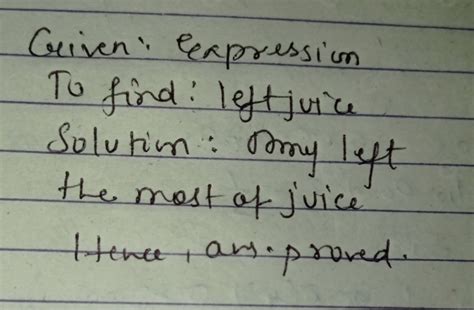 Given: Eexpression
To find: left juice
Solution: Amy left
the most of juice
Hence, ans. proved.